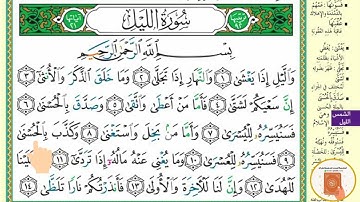 سُورَةُ اللَّيْلِ
بِسْمِ اللَّهِ الرَّحْمَٰنِ الرَّحِيمِ
وَاللَّيْلِ إِذَا يَغْشَىٰ ١ وَالنَّهَارِ إِذَا تَجَلَّىٰ ٢ وَمَا خَلَقَ الذَّكَرَ وَالْأُنثَىٰ ٣
إِنَّ سَعْيَكُمْ لَشَتَّىٰ ٤ فَأَمَّا مَنْ أَعْطَىٰ وَاتَّقَىٰ ٥ وَصَدَّقَ بِالْحُسْنَىٰ ٦
فَسَنُيَسِّرُهُ لِلْيُسْرَىٰ ٧ وَأَمَّا مَن بَخِلَ وَاسْتَغْنَىٰ ٨ وَكَذَّبَ بِالْحُسْنَىٰ
٩ فَسَنُيَسِّرُهُ لِلْعُسْرَىٰ ١٠ وَمَا يُغْنِي عَنْهُ مَالُهُ إِذَا تَرَدَّىٰ ١١ إِنَّ عَلَيْنَا
لَلْهُدَىٰ ١٢ وَإِنَّ لَنَا لَلْآخِرَةَ وَالْأُولَىٰ ١٣ فَأَنذَرْتُكُمْ نَارًا تَلَظَّىٰ ١٤
الشمس
الليل